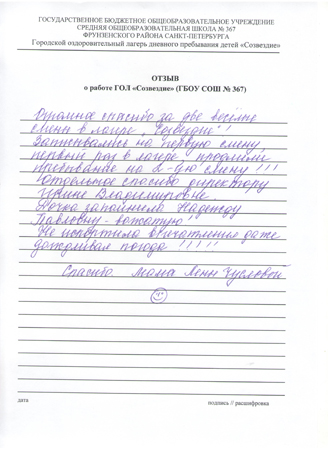 ГОСУДАРСТВЕННОЕ БЮДЖЕТНОЕ ОБЩЕОБРАЗОВАТЕЛЬНОЕ УЧРЕЖДЕНИЕ
СРЕДНЯЯ ОБЩЕОБРАЗОВАТЕЛЬНАЯ ШКОЛА № 367
ФРУНЗЕНСКОГО РАЙОНА САНКТ-ПЕТЕРБУРГА
Городской оздоровительный лагерь дневного пребывания детей «Созвездие»
ОТЗЫВ
о работе ГОЛ «Созвездие» (ГБОУ СОШ № 367)
Огромное спасибо за две весёлые
смены в лагере „Созвездие"!
Записывались на первую смену,
первый раз в лагере - продлили
пребывание на 2-ую смену!!!
Отдельное спасибо директору
Ирине Владимировне.
Дочка запомнила Надежду
Павловну - вожатую!
Не испортила впечатления даже
дождливая погода!!!!!
Спасибо мама Лены
дата
подпись // расшифровка